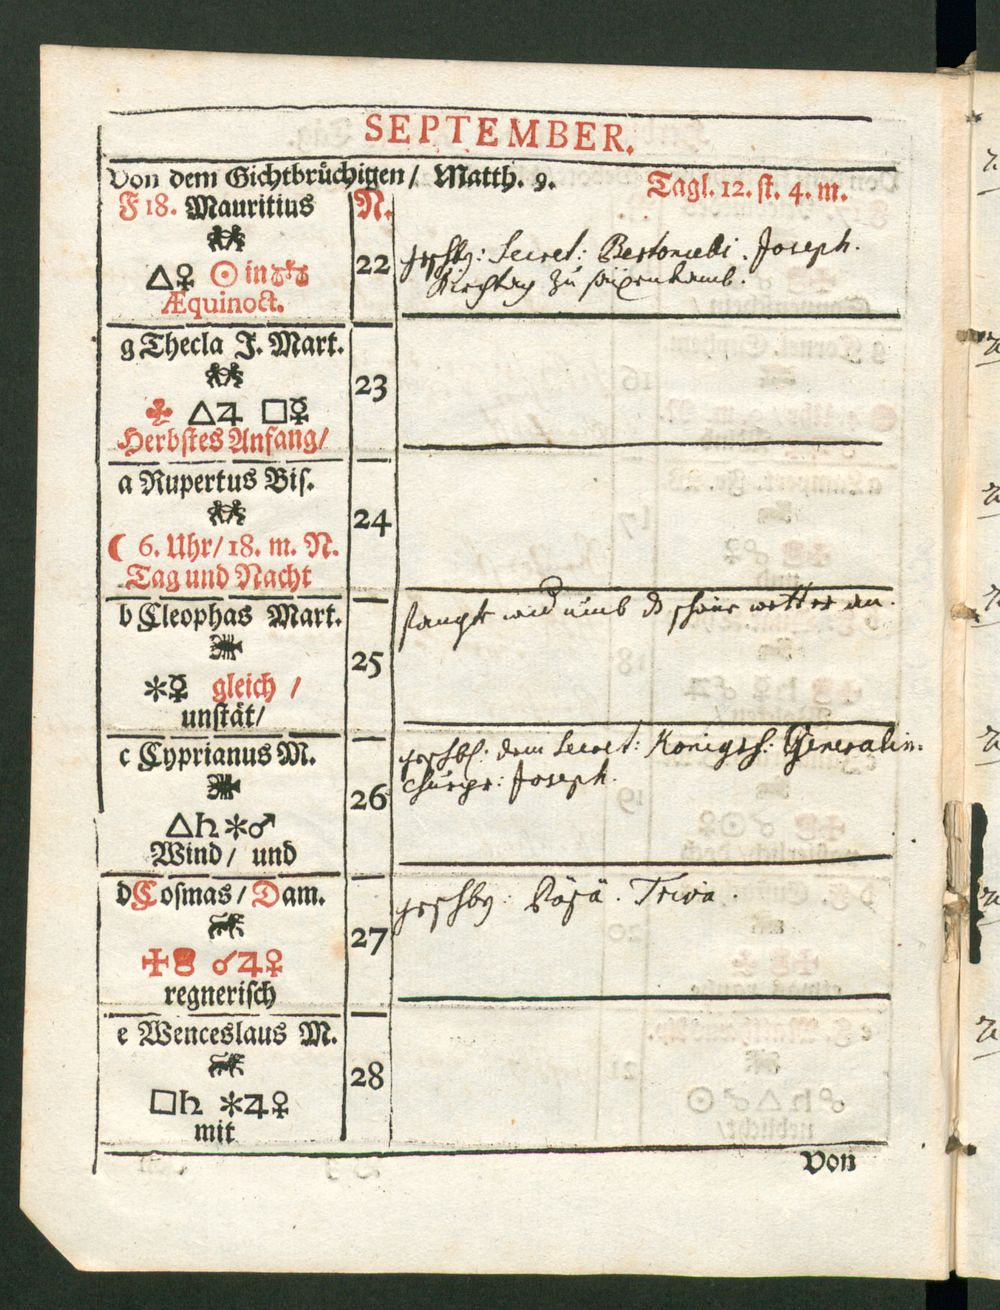 SEPTEMBER.
Von dem Gichtbrüchigen / Matth. 9.
Tagl. 12. st. 4. m.
F 18. Mauritius
N.
△♀ ☉ in ♎
Æquinoct.
22
Secret: Joseph.
Kirchtag zu
g Thecla J. Mart.
△♃ □☿
Herbstes Anfang/
23
a Rupertus Bis.
☾ 6. Uhr/ 18. m. N.
Tag und Nacht
24
b Cleophas Mart.
✱☿ gleich /
unstät/
25
wetter an.
c Cyprianus M.
△♄✱♂
Wind/ und
26
dem Secret: Königsf: Generalin.
Joseph.
d Cosmas / Dam.
☌♃♀
regnerisch
27
Triva.
e Wenceslaus M.
□♄ ✱♃♀
mit
28
Von